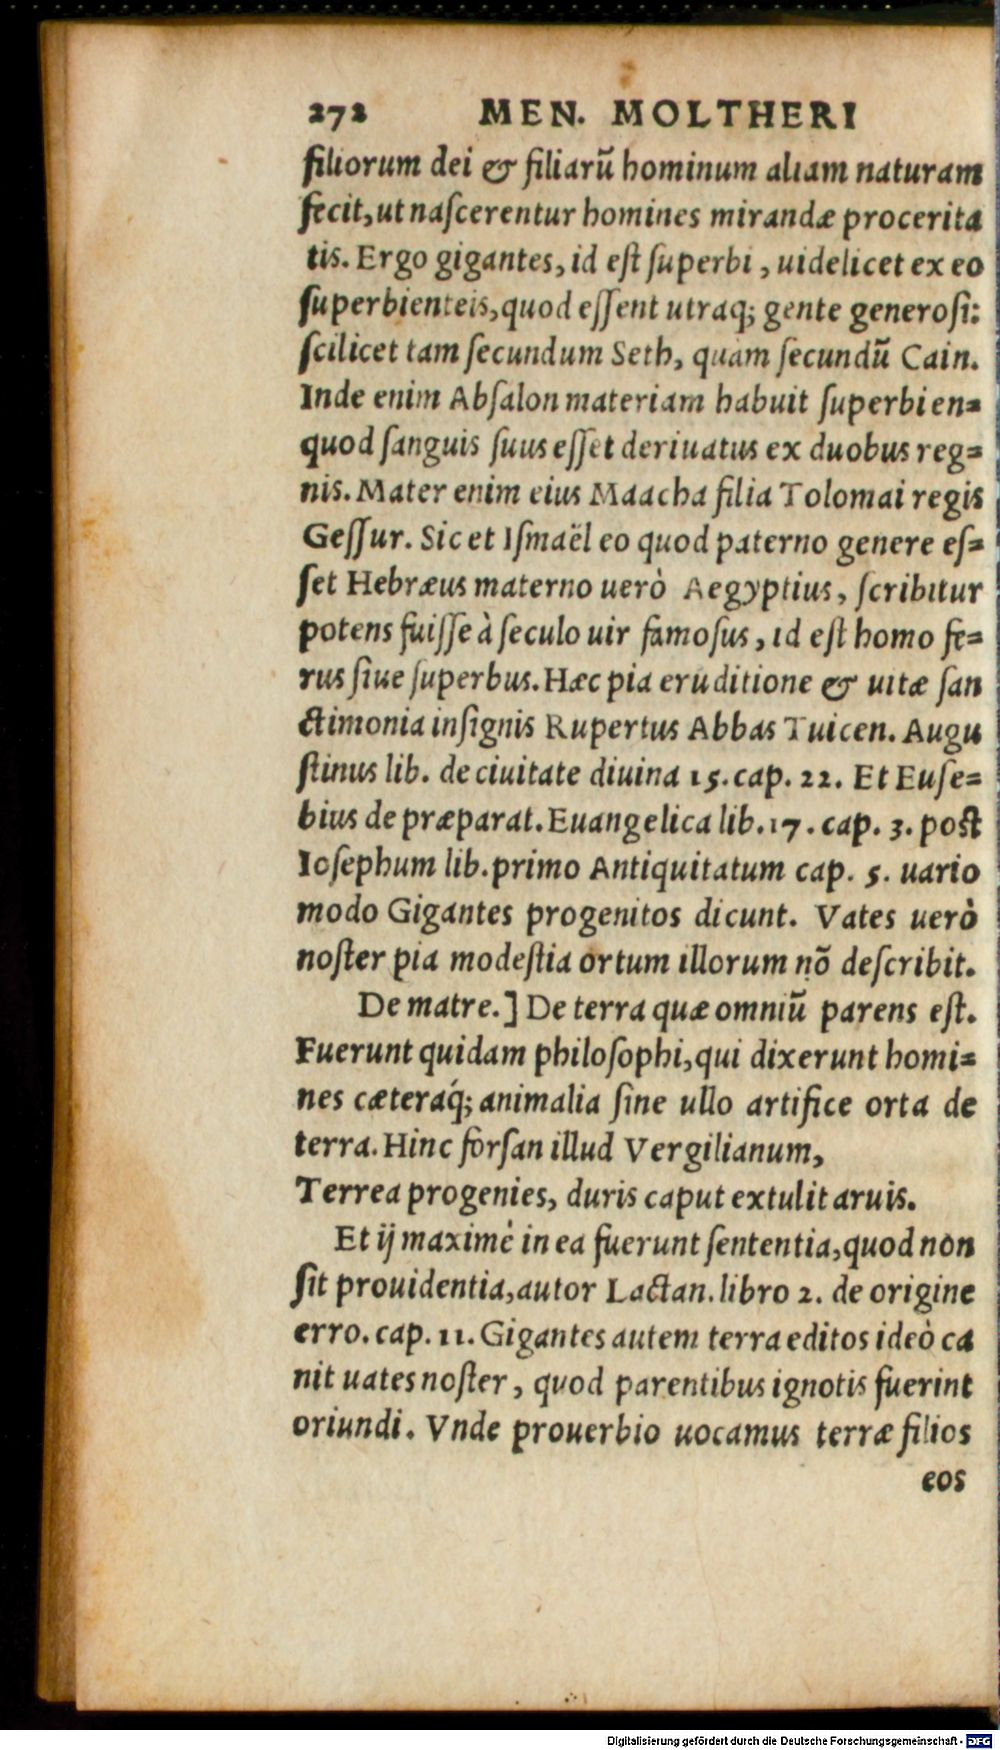 272 MEN. MOLTHERI
filiorum dei & filiarū hominum aliam naturam
fecit,ut naſcerentur homines mirandæ procerita
tis. Ergo gigantes, id eſt ſuperbi , uidelicet ex eo
ſuperbienteis,quod eſſent utraq; gente generoſi:
ſcilicet tam ſecundum Seth, quàm ſecundū Cain.
Inde enim Abſalon materiam habuit ſuperbien⸗
quod ſanguis ſuus eſſet deriuatus ex duobus reg⸗
nis. Mater enim eius Maacha filia Tolomai regis
Geſſur. Sic et Iſmaël eo quod paterno genere eſ⸗
ſet Hebræus materno uerò Aegyptius, ſcribitur
potens fuiſſe à ſeculo uir famoſus, id eſt homo fe⸗
rus ſiue ſuperbus. Hæc pia eruditione & uitæ ſan
ctimonia inſignis Rupertus Abbas Tuicen. Augu
ſtinus lib. de ciuitate diuina 15. cap. 22. Et Euſe⸗
bius de præparat. Euangelica lib. 17. cap. 3. poſt
Ioſephum lib. primo Antiquitatum cap. 5. uario
modo Gigantes progenitos dicunt. Vates uerò
noſter pia modeſtia ortum illorum nō deſcribit.
De matre.] De terra quæ omniū parens eſt.
Fuerunt quidam philoſophi,qui dixerunt homi⸗
nes cæteraq́; animalia ſine ullo artifice orta de
terra. Hinc forſan illud Vergilianum,
Terrea progenies, duris caput extulit aruis.
Et ij maximè in ea fuerunt ſententia,quod non
ſit prouidentia,autor Lactan. libro 2. de origine
erro. cap. 11. Gigantes autem terra editos ideò ca
nit uates noſter, quod parentibus ignotis fuerint
oriundi. Vnde prouerbio uocamus terræ filios
eos
Digitalisierung gefördert durch die Deutsche Forschungsgemeinschaft - DFG